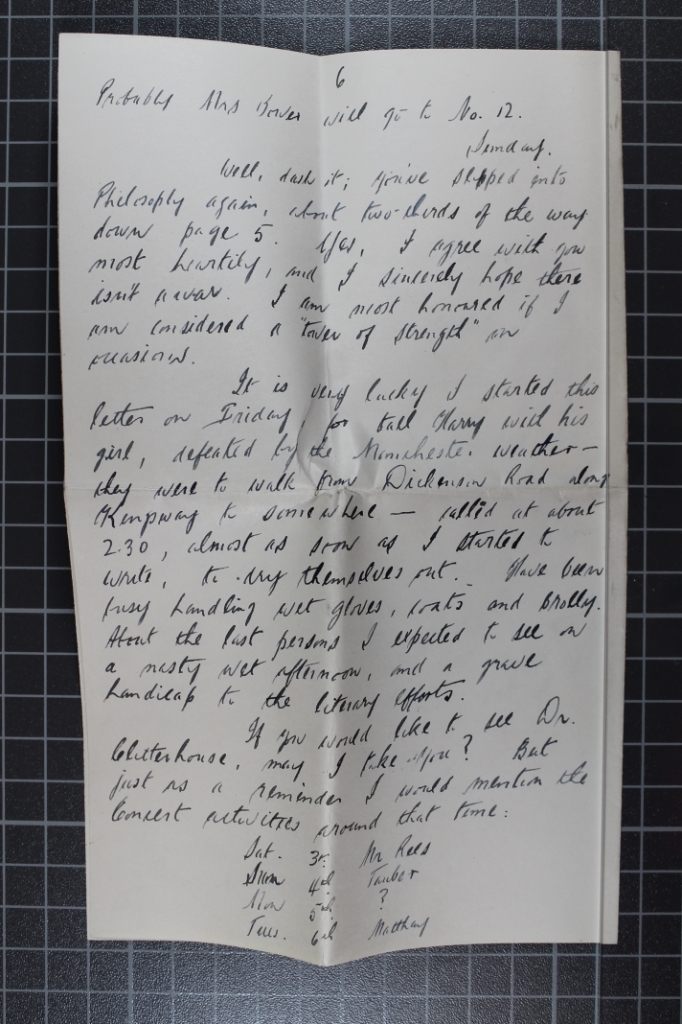 6
Probably Mrs Bower will go to No. 12.
Sunday.
Well, dash it; you've slipped into
Philosophy again, about two-thirds of the way
down page 5. Yes, I agree with you
most heartily, and I sincerely hope there
isn't a war. I am most honoured if I
am considered a "tower of strength" on
occasions.
It is very lucky I started this
letter on Friday, for tall Harry with his
girl, defeated by the Manchester weather —
they were to walk from Dickenson Road along
Kingsway to somewhere — called at about
2.30, almost as soon as I started to
write, to dry themselves out. Have been
busy handling wet gloves, coats and brolly.
About the last persons I expected to see on
a nasty wet afternoon, and a grave
handicap to the literary efforts.
If you would like to see Dr.
Clitterhouse, may I take you? But
just as a reminder I would mention the
Concert activities around that time:
Sat. 3rd Mr Rees
Sun 4th Tauber
Mon 5th ?
Tues. 6th Matthay